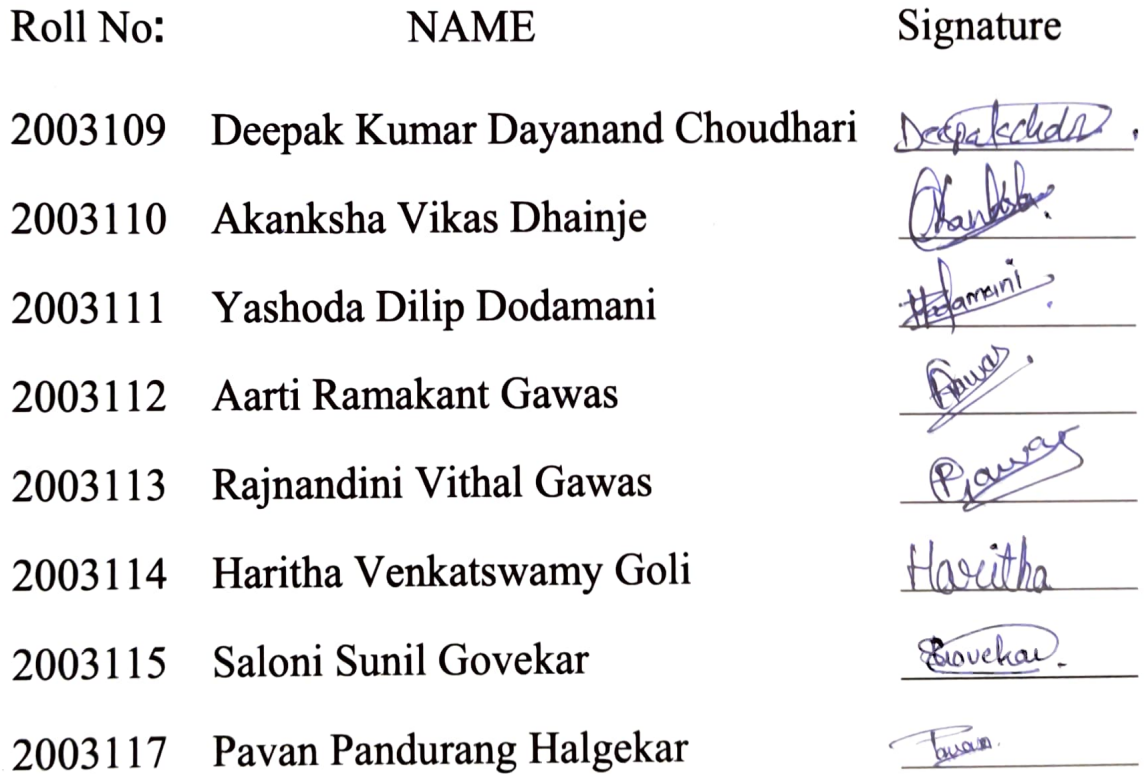 Roll No: NAME Signature
2003109 Deepak Kumar Dayanand Choudhari Deepakchdr.
2003110 Akanksha Vikas Dhainje Akanksha.
2003111 Yashoda Dilip Dodamani Dodamani
2003112 Aarti Ramakant Gawas Gawas.
2003113 Rajnandini Vithal Gawas RGawas
2003114 Haritha Venkatswamy Goli Haritha
2003115 Saloni Sunil Govekar SGovekar.
2003117 Pavan Pandurang Halgekar Pavan.